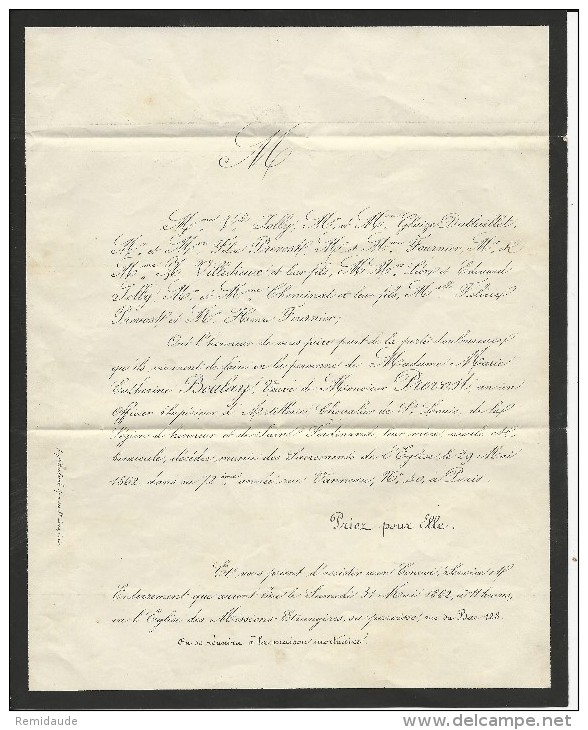 M
M.me V.ve Jolly, M.r et M.me Glaize Dutluillet,
M.r et M.me Jules Provost, M.r et M.me Fournier, M.r &
M.me de Villedieux et leur fils, M M.rs Léon et Edouard
Jolly, M.r et M.me Cheminade et leur fils, M.elle
Provost et M.r Henri Fournier;
Ont l'honneur de vous faire part de la perte douloureuse
qu'ils viennent de faire en la personne de Madame Marie
Catherine Boulay, Veuve de Monsieur Provost, ancien
Officier Supérieur d'Artillerie, Chevalier de S.t Louis, de la
Légion d'honneur et de Saint Ferdinand, leur mère,
décédée, munie des Sacrements de l'Eglise, le 29 Mai
1862, dans sa année, rue Vanneau, N.o 30, à Paris.
Priez pour Elle.
Et vous prient d'assister aux Convoi, Service &
Enterrement qui auront lieu le Samedi 31 Mai 1862, à heures,
en l'Eglise des Missions Etrangères, sa paroisse, rue du Bac 128.
On se réunira à la maison mortuaire.
Remidaude
www.delcampe.net